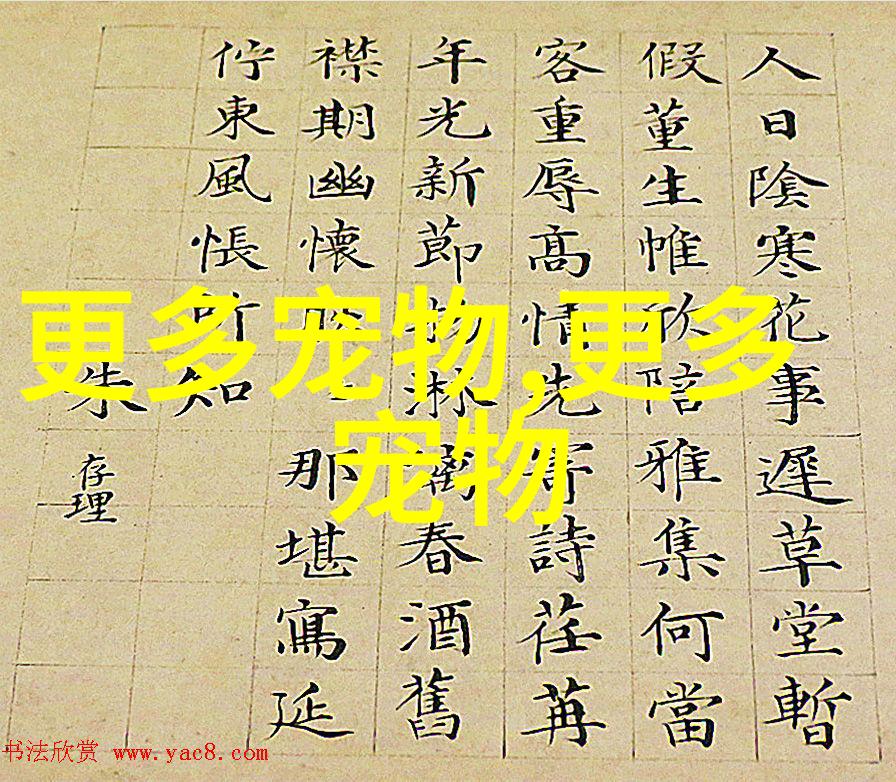 人日陰寒花事遲草堂暫
假董生帷欣陪雅集何當
客重辱高情先寄詩荏苒
年光新節物淋漓春酒舊
襟期幽懷那堪寫延
佇東風悵所知
朱存理
更多宠物,更多
宠物
书法欣赏 www.yac8.com